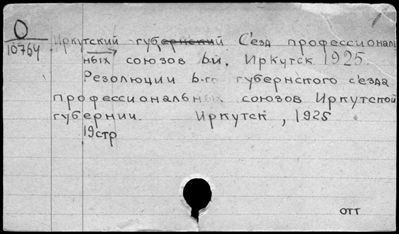 О
10764
Иркутский губернский Съезд профессиональ
ных союзов 6й, Иркутск 1925.
Резолюции 6-го губернского съезда
профессиональных союзов Иркутской
губернии. Иркутск, 1925
19стр
отт